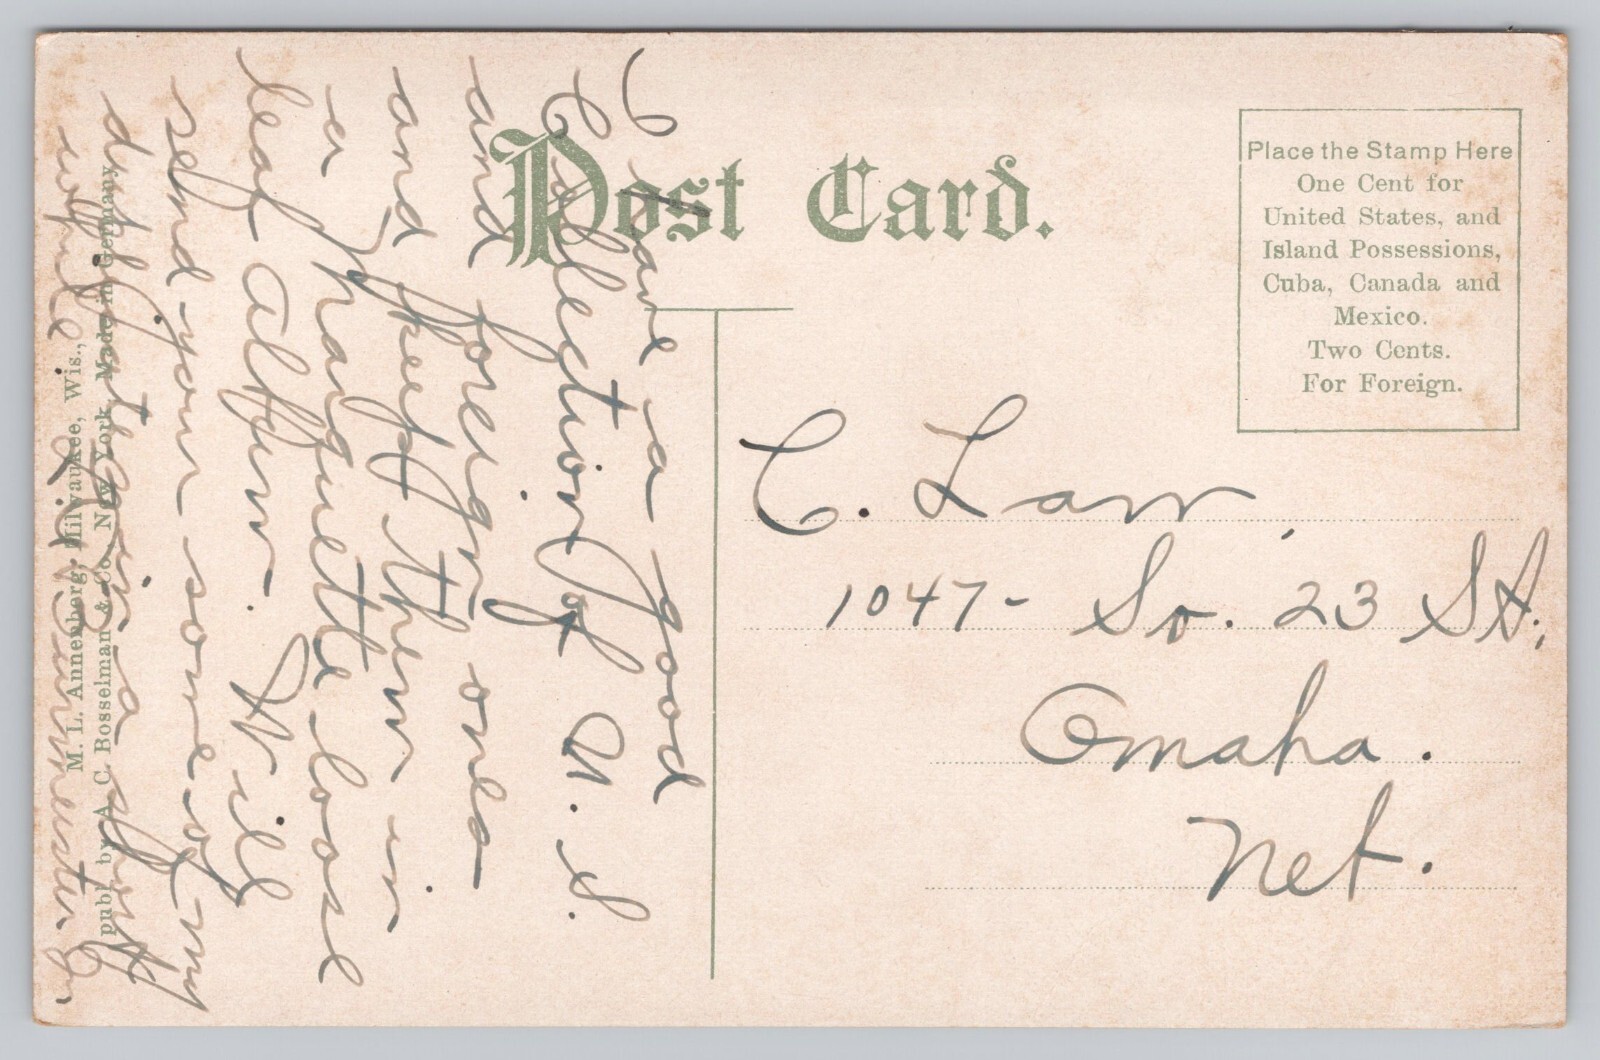 Post Card.
Place the Stamp Here
One Cent for
United States, and
Island Possessions,
Cuba, Canada and
Mexico.
Two Cents.
For Foreign.
C. Law,
1047 - So. 23 St.,
Omaha.
Neb.
I have a good
Collection of U. S.
and foreign ones
and keep them in
a Marquette loose
leaf album. Will
send you some of my
duplicates in a short
while
M. L. Annenberg, Milwaukee, Wis.,
publ. by A. C. Bosselman & Co., New York Made in Germany